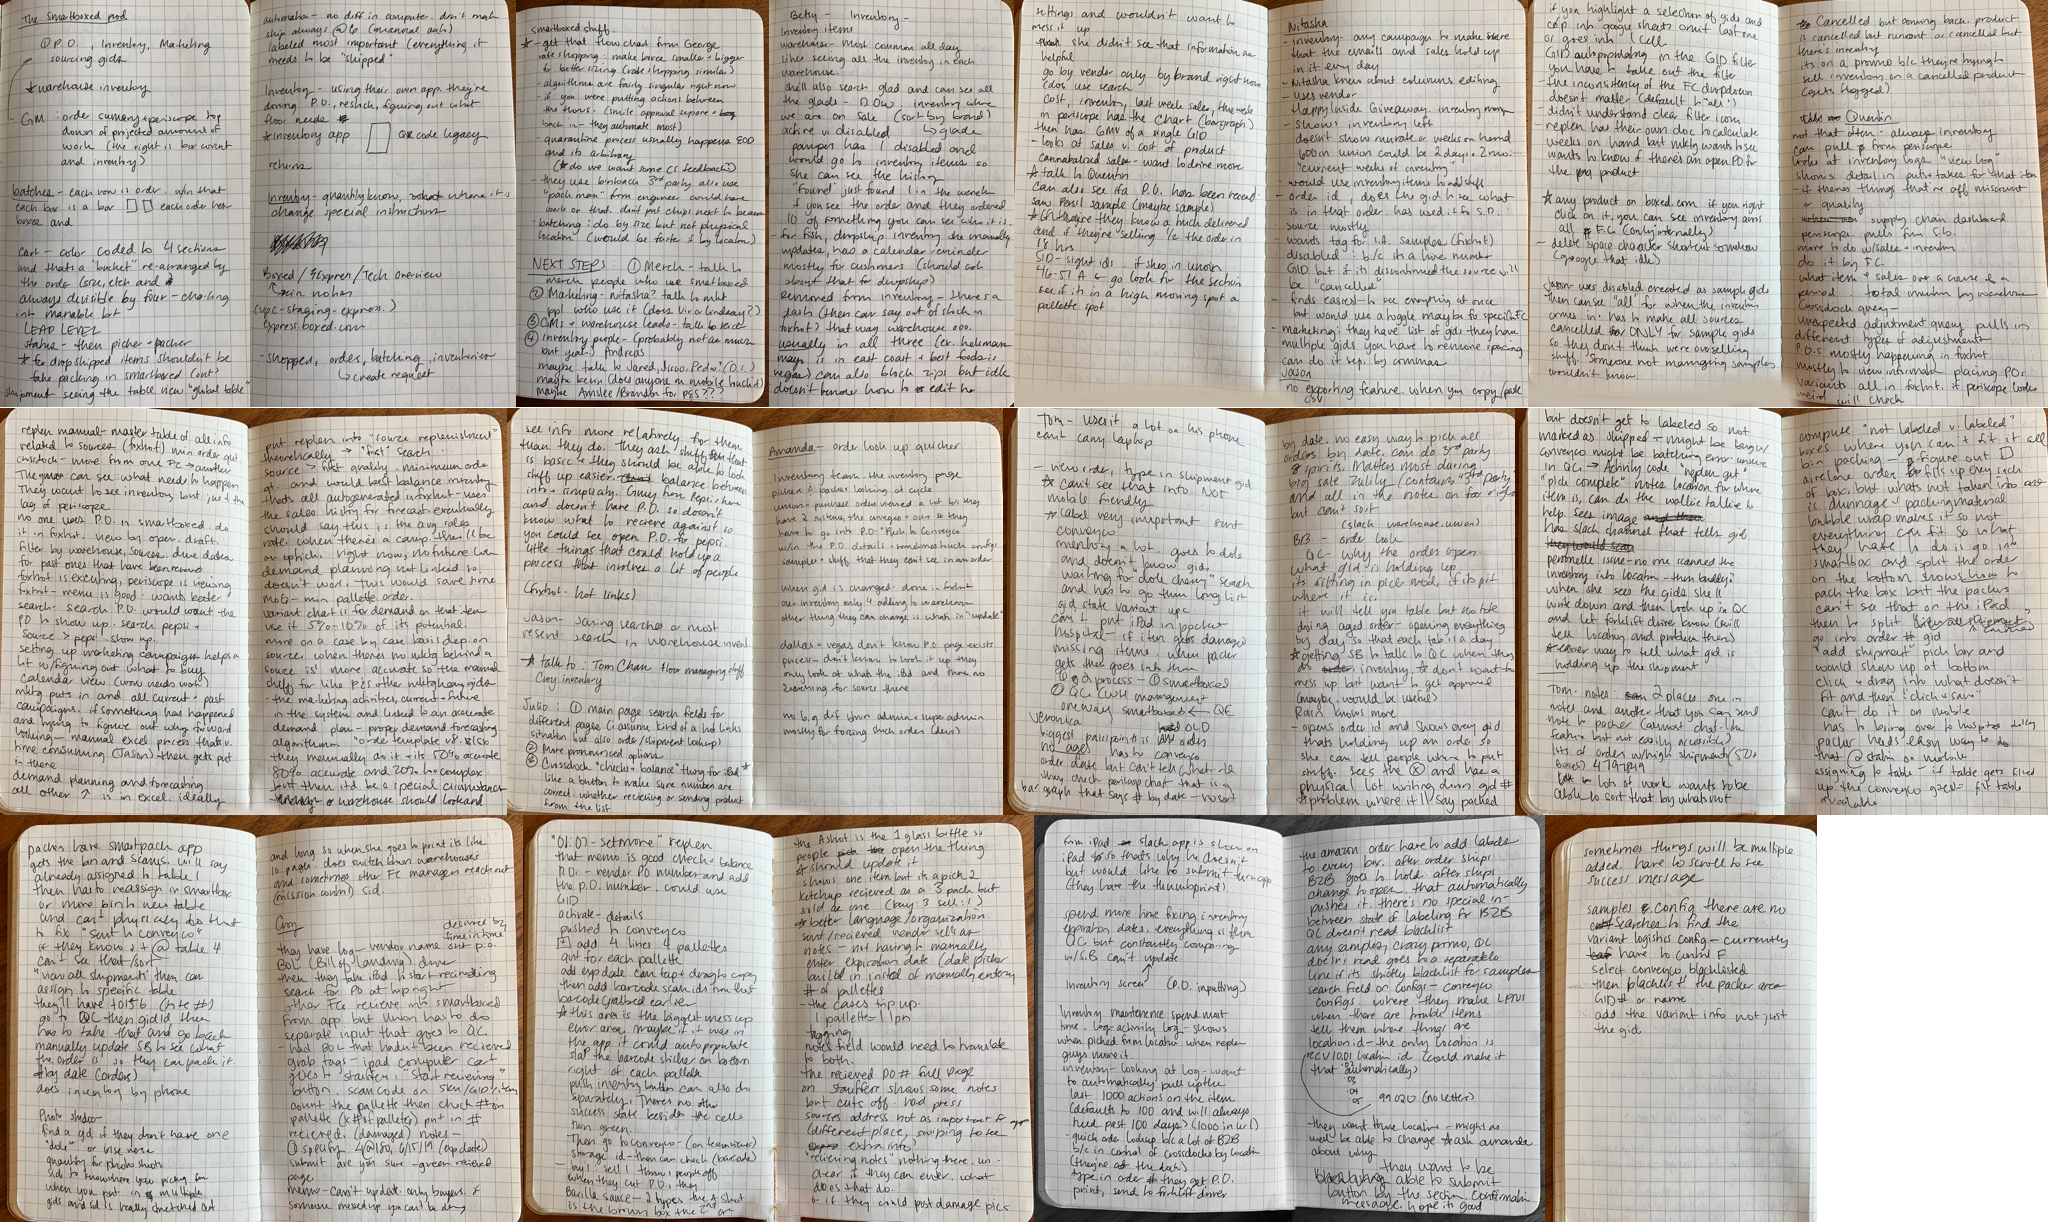 The Smartboxed pod
① P.O., Inventory, Marketing
sourcing gids
* warehouse inventory
- GM: order summary + periscope top
down of projected amount of
work (the right is box count
and inventory)
batches - each row is order. w/in that
each bar is a box each order has
boxes and
cart - color coded to 4 sections
and thats a "bucket" re-arranged by
the order (size, etc) and
always divisible by four - cha-ling
LEAD LEVEL
status - then picker + packer
* for dropshipped items shouldn't be
fake packing in smartboxed (ont)
shipment seeing the table view "global table"
automaha - no diff in computer. don't
ship always @ 6 (manual auto)
labeled most important (everything it
needs to be "shipped"
Inventory - using their own app. they're
doing P.O., restock, figuring out what
floor needs
* inventory app QR code legacy
returns
Inventory - quantity know, where it is
change special instruction
Boxed / Express / Tech overview
in notes
(vpc-staging-express.)
express.boxed.com
- shopped, orders, batching, inventories
↳ create request
smartboxed stuff.
* - get that flow chart from George
rate shopping: make boxes smaller + bigger
for better sizing (rate shopping similar)
- algorithms are fairly singular right now
- if you were putting actions between
the flows. (smile approval square +
back in - they automate most)
- quarantine process usually happens EOD
and its arbitrary
(* do we want some CS feedback?)
- they use binpack 3rd party also use
"pack man" from engineer could have
work on that. don't put chips next to
- batching: do by size but not physical
location (would be faster if by location)
NEXT STEPS: ① Merch - talk to
merch people who use smartboxed
② Marketing - nitasha? talk to mkt
ppl who use it (does viv or lindsay?)
③ GMs + warehouse leads - talk to
④ inventory people - (probably not as much
but yeah) Andreas
maybe talk to Jared, Jicoo. Pedro: (D.S.)
maybe kevin (does anyone on mobile
maybe Ainslee/Brandon for PES???
Betsy - Inventory -
Inventory items
warehouse - most common all day
likes seeing all the inventory in each
warehouse.
she'll also search glad and can see all
the glads - D.O.W inventory where
we are on sale (sort by brand)
active vs disabled ↳ glade
pamper has 1 disabled and
would go to inventory items so
she can see the history
"found" just found 1 in the week
if you see the order and they ordered
10 of something you can see who it is.
for fish, dropship inventory she manually
updates, has a calendar reminder
mostly for customers (should ask
about that for dropship)
removed from inventory - there's a
flash (then can say out of stock in
foxhot) that way warehouse ooo.
usually in all three (ex. hellman
mayo is in east coast + best foods is
vegas) can also block zips but idle
doesn't know how to edit he
settings and wouldn't want to
mess it up
she didn't see that information as
helpful
go by vendor only by brand right now
(does use search)
cost, inventory, last week sales, the week
in periscope has the chart (bargraph)
then has GMV of a single GID
- looks at sales v. cost of product
cannabalized sales - want to drive more
* talk to Quentin
can also see if a P.O. has been received
saw Persil sample (maybe sample)
and if they're selling 1/2 the order in
18 hrs
SID - sight ids. if she's in union
46-51 A ← go look for the section
see if its in a high moving spot a
pallette spot
Nitasha
- inventory - any campaign to make sure
that the emails and sales hold up
in it every day
- Nitasha knew about columns editing
- uses vendor
Happy Inside Giveaway. inventory
- shows inventory left
doesn't show runrate or weeks on hand
600 in union could be 2 days or 2 mo.
"current weeks of inventory"
- would use inventory items to add stuff
- order id, does the gid + see what
is in that order has used it for S.D.:
source mostly
- wants tag for I.A. samples (foxhot)
disabled: b/c its a hive number
GID but if its discontinued the source will
be "cancelled"
- finds easiest to see everything at once
but would use a toggle maybe to specific FC
- marketing: they have list of gids they have
multiple gids you have to remove spacing
can do it sep. by commas
Jason
no exporting feature. when you copy/paste
CSV
if you highlight a selection of gids and
copy into google sheets omit last one
or goes into 1 cell
GID autopopulating in the GID filter
you have to take out the filter
- the inconsistency of the FC dropdown
doesn't matter (default to "all")
- didn't understand clear filter icon
replen has their own doc to calculate
weeks on hand but mktg wants to see
wants to know if there's an open PO for
the product
* any product on boxed.com if you right
click on it, you can see inventory across
all FC (only internally)
- delete space character shortcut somehow
(google that idle)
Jason - was disabled created as sample gids
then can see "all" for when the inventory
comes in. has to make all sources
cancelled ONLY for sample gids
so they don't think we're overselling
stuff. Someone not managing samples
wouldn't know.
Cancelled but coming back. product
is cancelled but runout or cancelled but
there's inventory
its on a promo b/c they're trying to
sell inventory on a cancelled product
(gets flagged)
Quentin
not that often - always inventory
can pull from periscope
looks at inventory logs "view log"
shows detail in puts + takes for that item
if there's things that're off miscount
or quality
supply chain dashboard
periscope. pulls from S.b.
more to do w/ sales + inventory
do it by FC.
what item + sales over a course of a
period. total inventory by warehouse
crossdock query -
unexpected adjustment query pulls in
different types of adjustments
P.O.s mostly happening in foxhot
mostly to view information placing POs
variants all in foxhot. if periscope looks
weird will check
replen manual - master table of all info
related to sources (foxhot) min order qt.
crossdock - move from one FC → another
They can see what needs to happen
They want to see inventory but just the
lag of periscope
no one uses P.O. in smartboxed. do
it in foxhot. view by open. draft.
filter by warehouse, source. due dates
for past ones that have been received
foxhot is executing, periscope is viewing
foxhot - menu is good - wants better
search - search P.O. would want the
PO to show up. search pepsi +
source > pepsi show up.
setting up marketing campaigns helps a
lot w/ figuring out what to buy
calendar view (wrong needs work)
mktg puts in and all current + past
campaigns. if something has happened
and trying to figure out why forward
looking - manual excel process that's v.
time consuming (Jason) then gets put
in there
demand planning and forecasting
all other ↑ is in excel. ideally
put replen into "source replenishment"
theoretically → "first" search
source > first quality - minimum order
qt. and would best balance inventory
that's all autogenerated in foxhot - uses
the sales history for forecasts eventually
should say this is the avg sales
rate. when there's a camp. there'll be
an uptick. right now, no future looking
demand planning not linked so
doesn't work. This would save time
MOQ - min pallette order.
variant chart is for demand on that item
use it 5%-10% of its potential.
more on a case by case basis dep. on
source. when there's no mktg behind a
source is more accurate so the manual
stuff for like PES other mktg heavy gids
- the marketing activities, current + future
in the system and linked to an accurate
demand plan - proper demand forecasting
algorithm. "order template v8.8.15x"
they manually do it + its 50% accurate
80% accurate and 20% to complex
but then it'd be a special circumstance
or warehouse should look and
see info more relatively for them
than they do. They ask stuff from that
is basic + they should be able to look
stuff up easier. balance between
info + simplicity. Guy from Pepsi here
and doesn't have P.O. so doesn't
know what to recieve against so
you could see open P.O. for pepsi.
little things that could hold up a
process that involves a lot of people
(foxhot - hot links)
Jason - Saving searches or most
recent search in Warehouse invent.
* talk to: Tom Chan floor managing stuff
Cloy inventory
Julio: ① main page search fields for
different pages (i assume kind of a hot links
situation but also order/shipment lookup)
② More pronounced options
③ Crossdock "checks + balance" thing for iPad *
like a button to make sure number are
correct whether recieving or sending product
from the list
Amanda - order look up quicker
Inventory team - the inventory page
picker + packer looking at cycle
union - purchase order viewed a lot b/c they
have 2 systems, the conveyco + ours so they
have to go into P.O. "Push to Conveyco"
w/in the P.O. details + sometimes bucket configs
samples + stuff that they can't see in an order
when gid is changed - done in foxhot
our inventory only + adding to warehouse
other thing they can change is whats in "update"
dallas + vegas don't know P.O. page exists
process - don't know to look it up they
only look at what the iPad and then no
searching for source there
no big dif btwn admin + supe admin
mostly for forcing stuck orders (devs)
Tom - uses it a lot on his phone
cant carry laptop
- view order, type in shipment gid
* can't see that info. NOT
mobile friendly
* label very important sent
conveyco
inventory a lot. goes to dole
and doesn't know gids,
waiting for "dole cherry" search
and has to go thru long list
gid state variant upc
can't put iPad in pocket
hospital - if item gets damaged
missing items. when packer
gets these goes into then
① 2 process - ① smartboxed
② QC (WH management
oneway smartboxed ← QC
Veronica
biggest painpoint is OLD
no ages has to conveyco
order date but can't tell what-
bar graph that says # by date - no sort
by date. no easy way to pick all
orders by date, can do 3rd party
& spirits. Matters most during
big sale Zulily (contains "3rd party"
and all in the notes on far right
but can't sort
(slack warehouse.union)
B/B - order look
QC - why the order open
what gid is holding up
its sitting in pick mod, if its pit
where it is.
it will tell you table but no tote
doing aged order - opening everything
by day so that each tab is a day
* getting SB to talk to QC when they
do inventory. * don't want to
mess up but want to get approval
(maybe, would be useful)
Rain knows more
- opens order id and shows every gid
thats holding up an order so
she can tell people where to put
stuff. sees the Ⓧ and has a
physical list writing down gid #
* problem where it'll say packed
but doesn't get to labeled so not
marked as shipped - might be
conveyco might be batching error - unsure
in QC: → Activity code "replen get"
"pick complete" notes location for where
item is, can do the wallkie talkie to
help. sees image
has slack channel that tells gid
personelle issue - no one scanned the
inventory into location - then buddy.
when she sees the gids she'll
work down and then look up in QC
and let forklift driver know (will
tell location and problem them)
* easier way to tell what gid is
holding up the shipment
Tom - notes: 2 places one in
notes and another that you can send
note to packer (almost chat-like
feature but not easily accessible)
lots of orders which shipments (50+
boxes) 4797849
lots of work wants to be
able to sort that by whats not
compute "not labeled v. labeled"
boxes where you can + fit it all
bin packing - figure out
airclone order fills up every inch
of box, but whats not taken into acct
is dunnage + packing material
bubble wrap makes it so not
everything can fit so what
they have to do is go in
smartbox and split the order
on the bottom shows how to
pack the box but the packers
can't see that on the iPad
then to split "view all shipment"
go into order # gid
"add shipment" pick box and
would show up at bottom
click + drag into what doesn't
fit and then "click + save"
Can't do it on mobile
has to bring over to hospital
packer needs easy way to do
that @ station on mobile
assigning to table - if table gets filled
up the conveyco goes → 1st table
available
packers have smartpack app
gets the box and scans. will say
already assigned to table 1
then has to reassign in smartbox
or move bin to new table
and can't physically do that
to fix "sent to conveyco"
if they know it @ table 4
can't see that / sort
"view all shipments" then can
assign to specific table
they'll have t0156 (tote #)
go to QC then gid id then
has to take that and go back
manually update SB to see what
the order is so they can pack it
* by date (orders)
does inventory by phone
Photo shutdown
find a gid if they don't have one
"dole" or vise versa
quantity for photo shoot
sids to know where you picking from
when you put in multiple
gids and sid is really stretched out
and long so when she goes to print its like
10 pages. does switch btwn warehouses
and sometimes other FC managers reach out
(mission control) sid.
Croy
delivered by
time in time
they have log - vendor name and p.o.
BOL (Bill of Landing) driver
- then they take iPad to start recieveing
search for PO at top right
other FCs recieve into smartboxed
from app but union has to do
separate input that goes to QC
- had BOL that hadn't been recieved
grab tags - ipad computer cart
goes to "stauffer" "start recieveing"
button, scan code on sku/GID/item
count the pallette then check # on
pallette (x # of pallets) put in #
recieved: (damaged) notes -
① specify 4@180, 6/15/19 (exp date)
submit are you sure - green recieved
page.
memo - can't update. only buyers. if
someone messed up you can't be deny
"01:07 - setmore" replen
that memo is good check + balance
P.O. - vendor PO number and add
the P.O. number. could use
GID
activate - details
pushed to conveyco
[+] add 4 lines 4 pallettes
qut for each pallette
add exp date can tap + drag to copy
then add barcode scan ids from that
barcode (grabbed earlier
* this area is the biggest mess up
error area, maybe if it was in
the app it could autopopulate
slap the barcode sticker on bottom
right of each pallette
push inventory button can also do
separately. There's no
success state besides the cells
turn green.
Then go to conveyco - (on teamviewer)
storage id - then can check (barcode)
- buy 1 sell 1 throws people off
when they cut P.O.s they
Barilla sauce - 2 types the 1st short
is the brown box the 2nd or
the Ashot is the 1 glass bottle so
people open the thing
* should update it
shows one item but its a pick 2
ketchup recieved as a 3 pack but
sold as one (buy: 3 sell: 1)
* better language / organization
sent / recieved vendor sells as
notes - not having to manually
enter expiration date (date picker
build in instead of manually entering
# of pallettes
- the cases tip up.
1 pallette = 1 lpn
tagging
notes field would need to translate
to both.
the recieved PO # full page
on Stauffer shows some notes
but cuts off - had press
sources address not as important for
(different place, swiping to see
extra info)
"recieving notes" nothing there. un-
clear if they can enter. what
does that do.
or if they could post damage pics
from iPad slack app is slow on
iPad so that's why he doesn't
but would like to submit thru app
(they have the thumbprint)
spend more time fixing inventory
expiration dates. everything is from
QC but constantly comparing
w/ S.B can't update
inventory screen (P.O. inputting)
Inventory maintenence spend most
time. log - activity log - shows
when picked from location when replen
guys move it.
inventory - looking at log - want
to automatically pull up the
last 1000 actions on the item
(defaults to 100 and will always
need past 100 days) (1000 in url)
- quick order lookup b/c a lot of B2B
b/c in control of crossdocks by location
(they're at the dock)
type in order # they get P.O.
print, send to forklift driver
the amazon order have to add labels
to every box. after order ships
B2B goes to hold, after ships
change to open. that automatically
pushes it. there's no special in-
between state of labeling for B2B
QC doesn't read blacklist
any samples, crazy promo, QC
doesn't read goes to a separable
line if its strictly blacklist for samples
search field on Configs - conveyco
Configs. where they make LPNs
when there are trouble items
tell them where things are
location id - the only location is
RCV 1001 location id (could make it
that automatically)
02
03
04
05
99020 (no letter)
- they want those location - might as
well be able to change * ask amanda
about why
they want to be
able to submit
button by the section confirmation
message. hope its good
sometimes things will be multiple
added. have to scroll to see
success message
samples & config there are no
searches to find the
variant logistics config - currently
have to control F
select conveyco blacklisted
then blacklist the packer area
GID # or name
add the variant info not just
the gid.